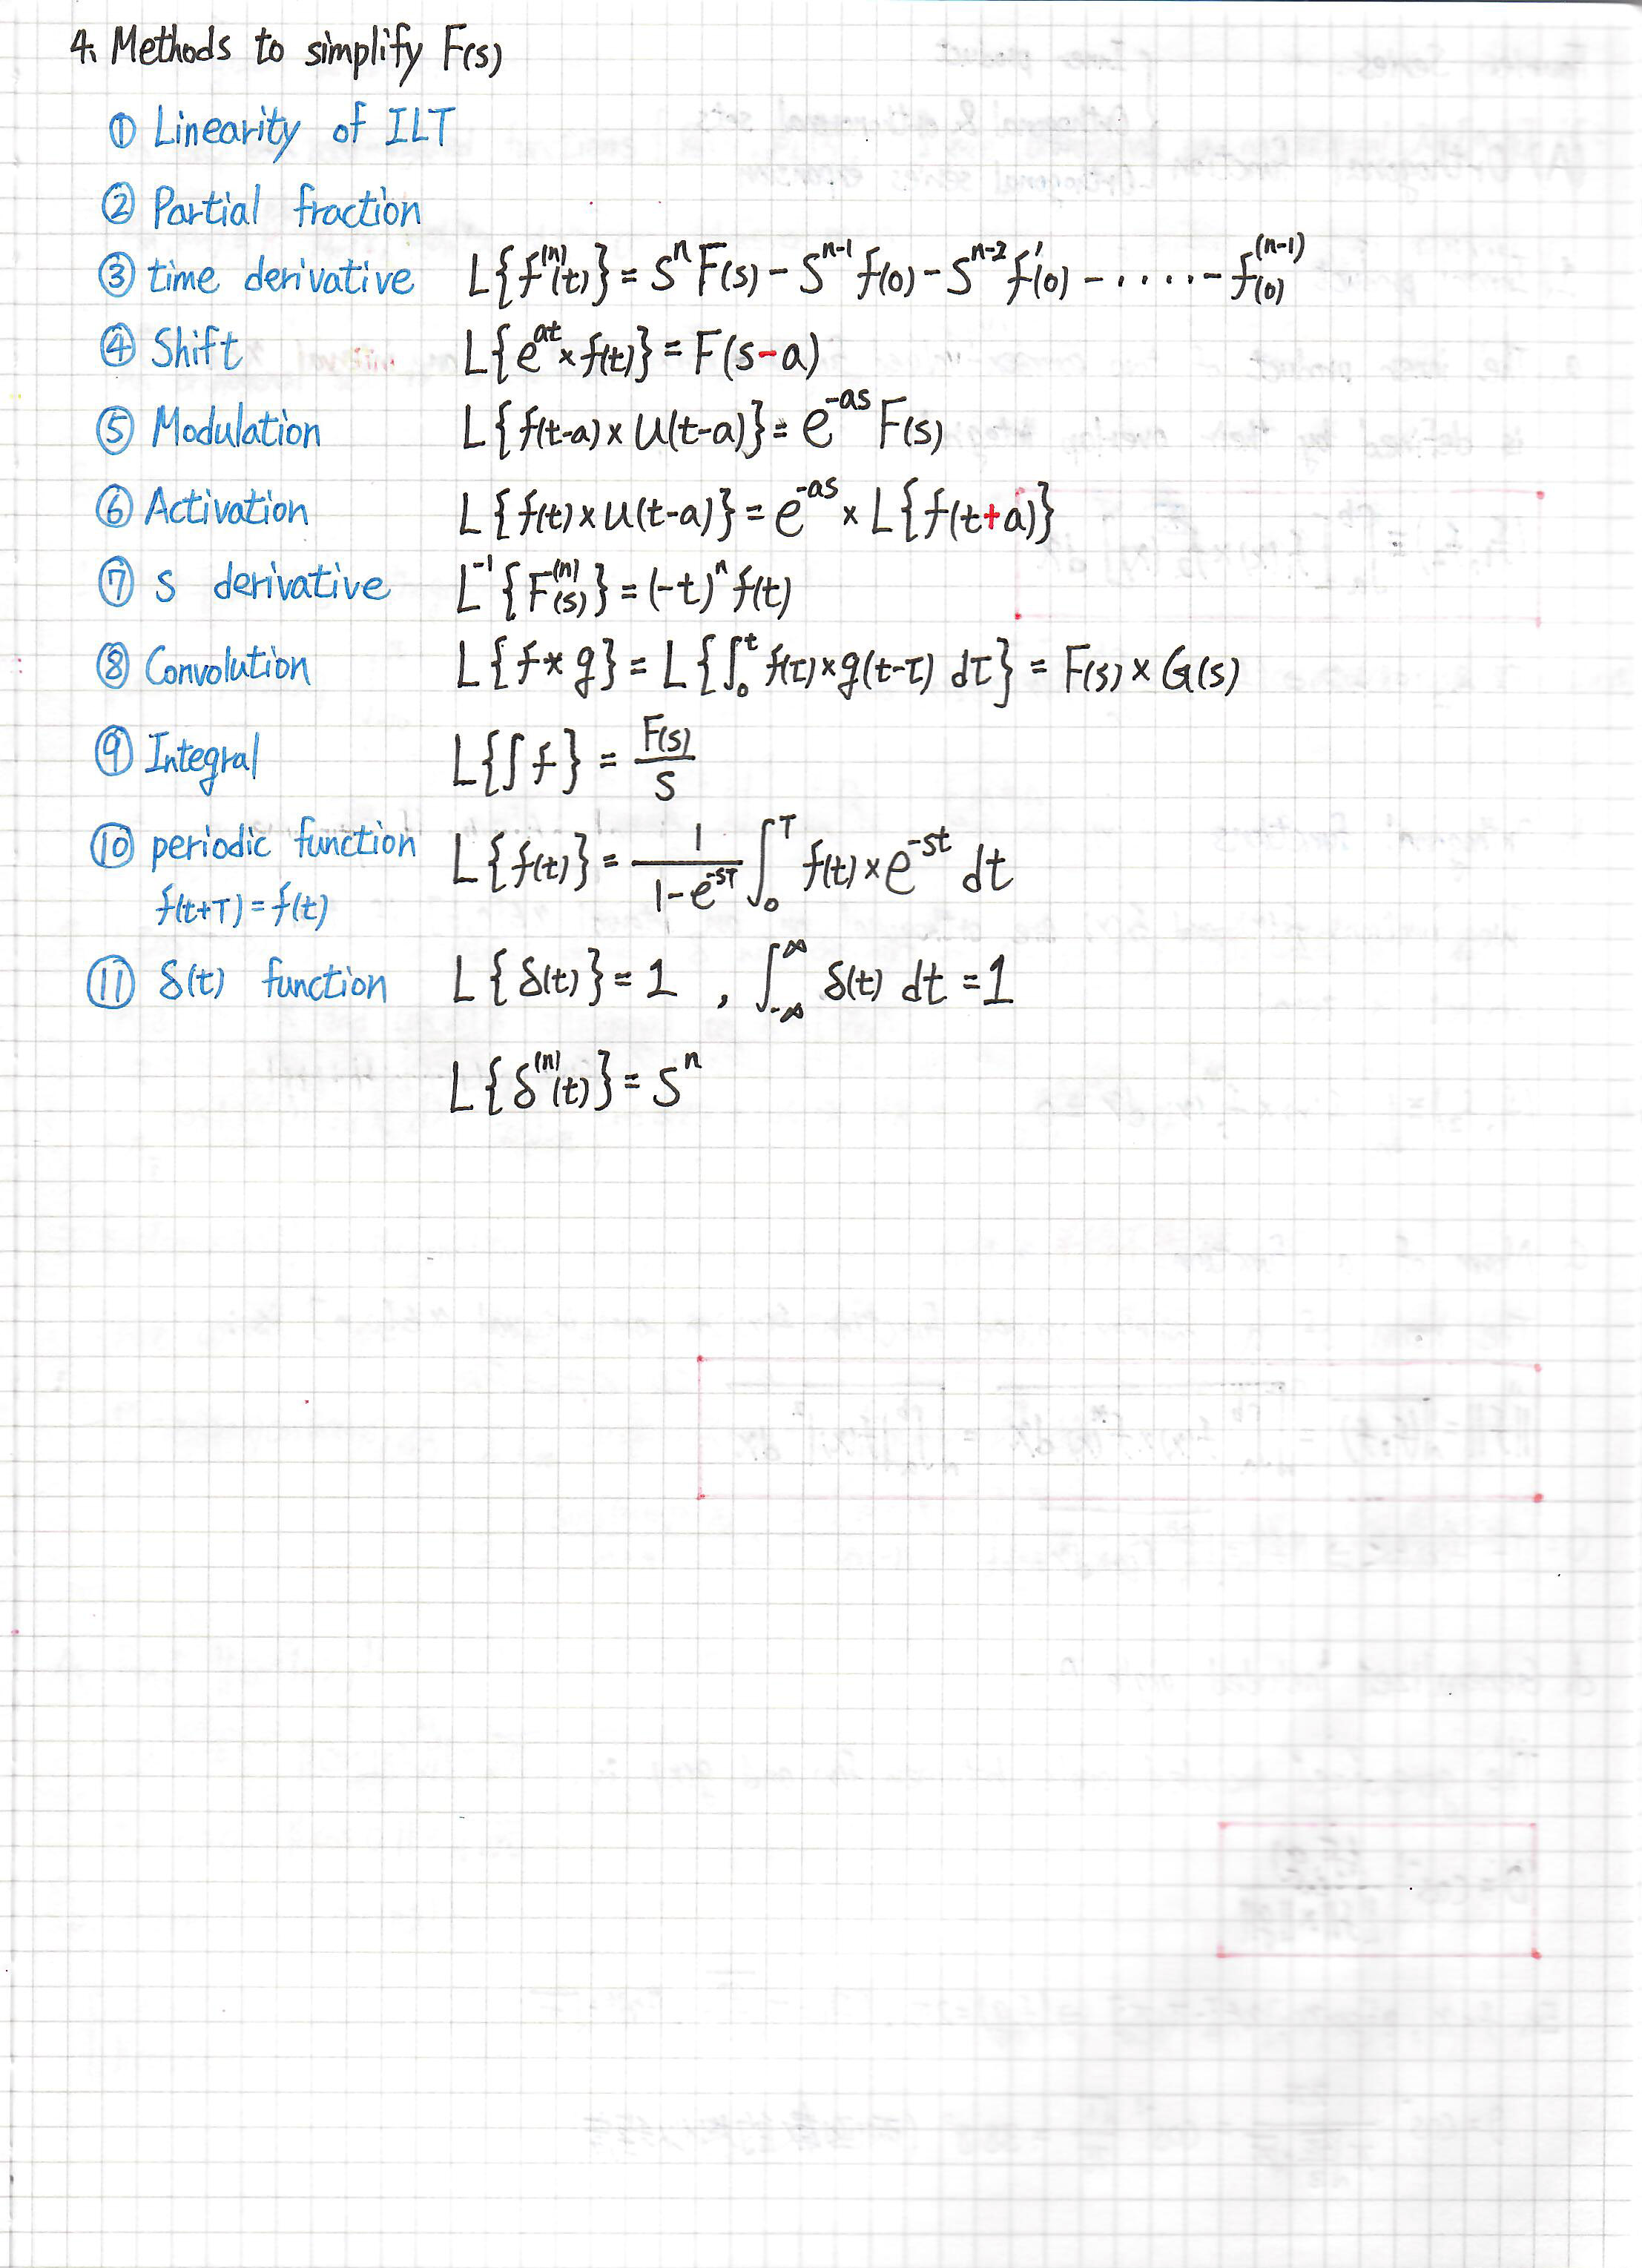 4. Methods to simplify F(s)
① Linearity of ILT
② Partial fraction
③ time derivative L{f⁽ⁿ⁾(t)} = Sⁿ F(s) - Sⁿ⁻¹ f(0) - Sⁿ⁻² f'(0) - ····· - f⁽ⁿ⁻¹⁾(0)
④ Shift L{e^at × f(t)} = F(s-a)
⑤ Modulation L{f(t-a) × U(t-a)} = e^-as F(s)
⑥ Activation L{f(t) × U(t-a)} = e^-as × L{f(t+a)}
⑦ S derivative L⁻¹{F⁽ⁿ⁾(s)} = (-t)ⁿ f(t)
⑧ Convolution L{f * g} = L{∫₀ᵗ f(τ) × g(t-τ) dτ} = F(s) × G(s)
⑨ Integral L{∫ f} = F(s)/S
⑩ periodic function L{f(t)} = 1/(1-e^-ST) ∫₀ᵀ f(t) × e^-st dt
f(t+T) = f(t)
⑪ δ(t) function L{δ(t)} = 1 , ∫_-∞^∞ δ(t) dt = 1
L{δ⁽ⁿ⁾(t)} = Sⁿ